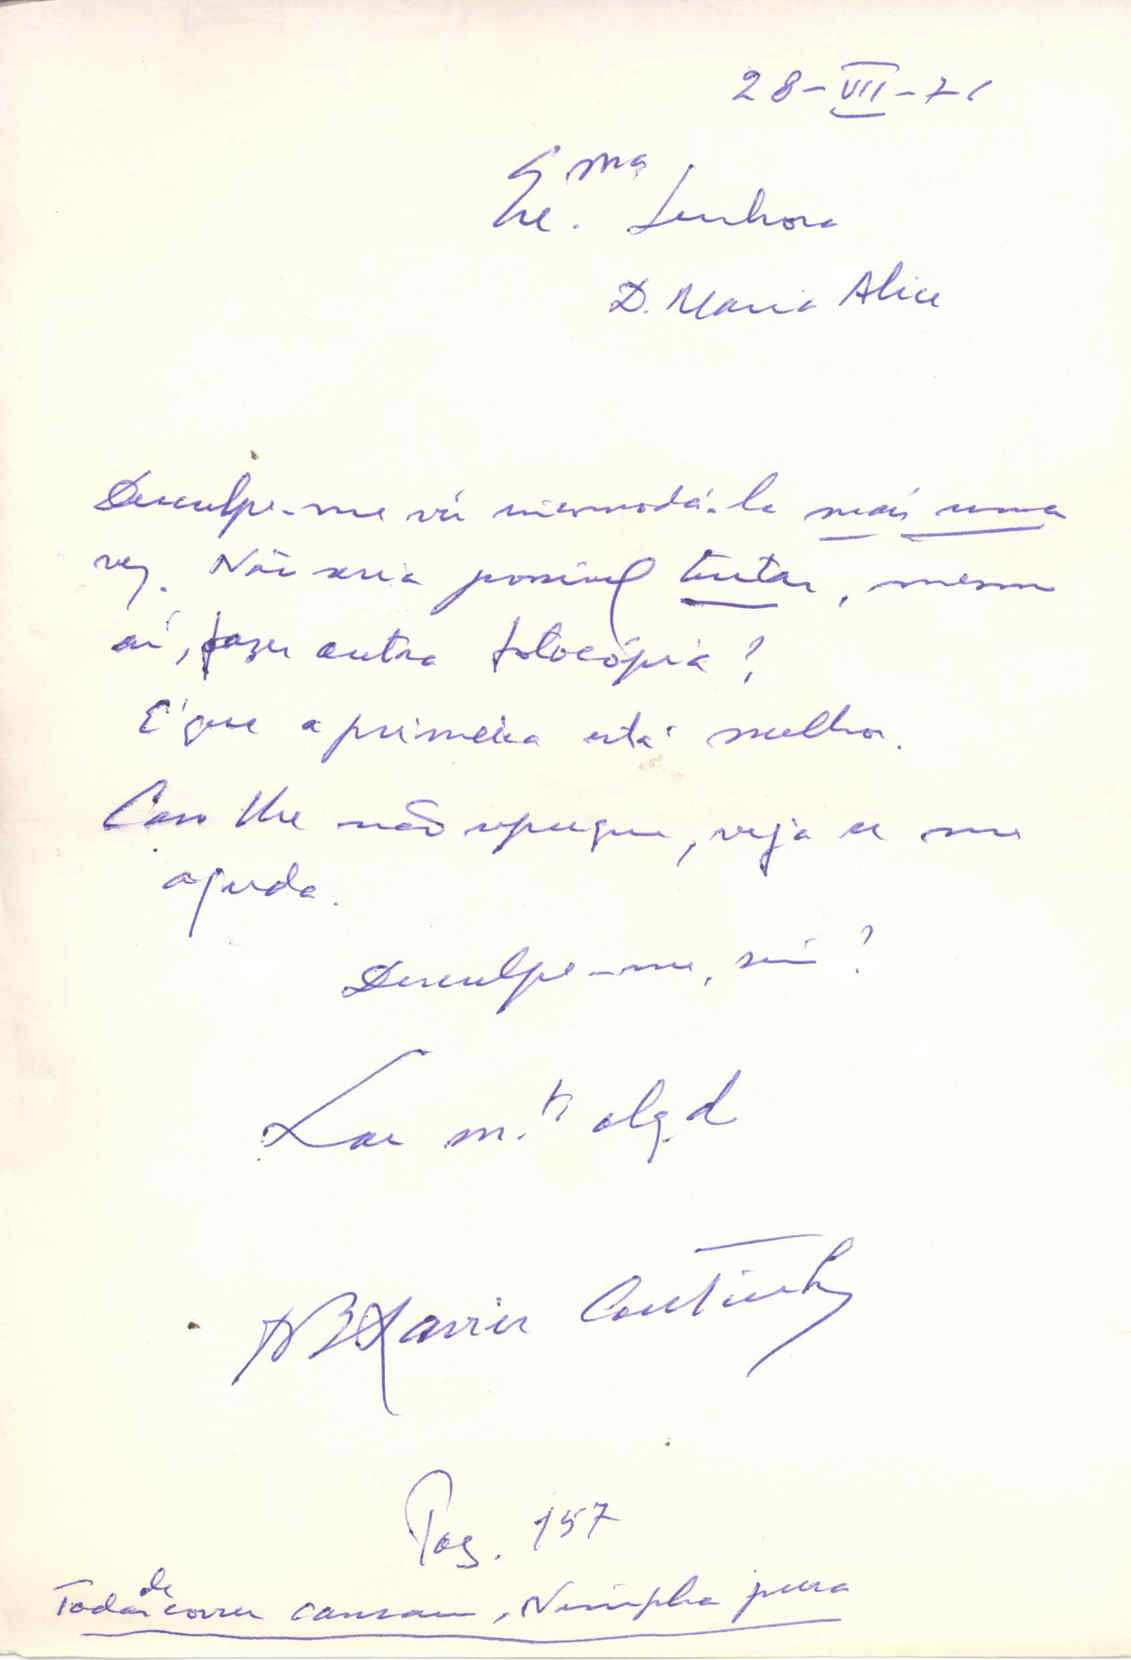 28-VII-71
Exma. Senhora
D. Maria Alice
Desculpe-me vir incomodá-la mais uma
vez. Não seria possível tentar, mesmo
aí, fazer outra fotocópia?
É que a primeira está melhor.
Caso lhe não repugne, veja se me
ajuda.
Desculpe-me, sim?
m.to obg.d
B Xavier Coutinho
Pag. 157
Todas de correr cansam, Nimpha pura